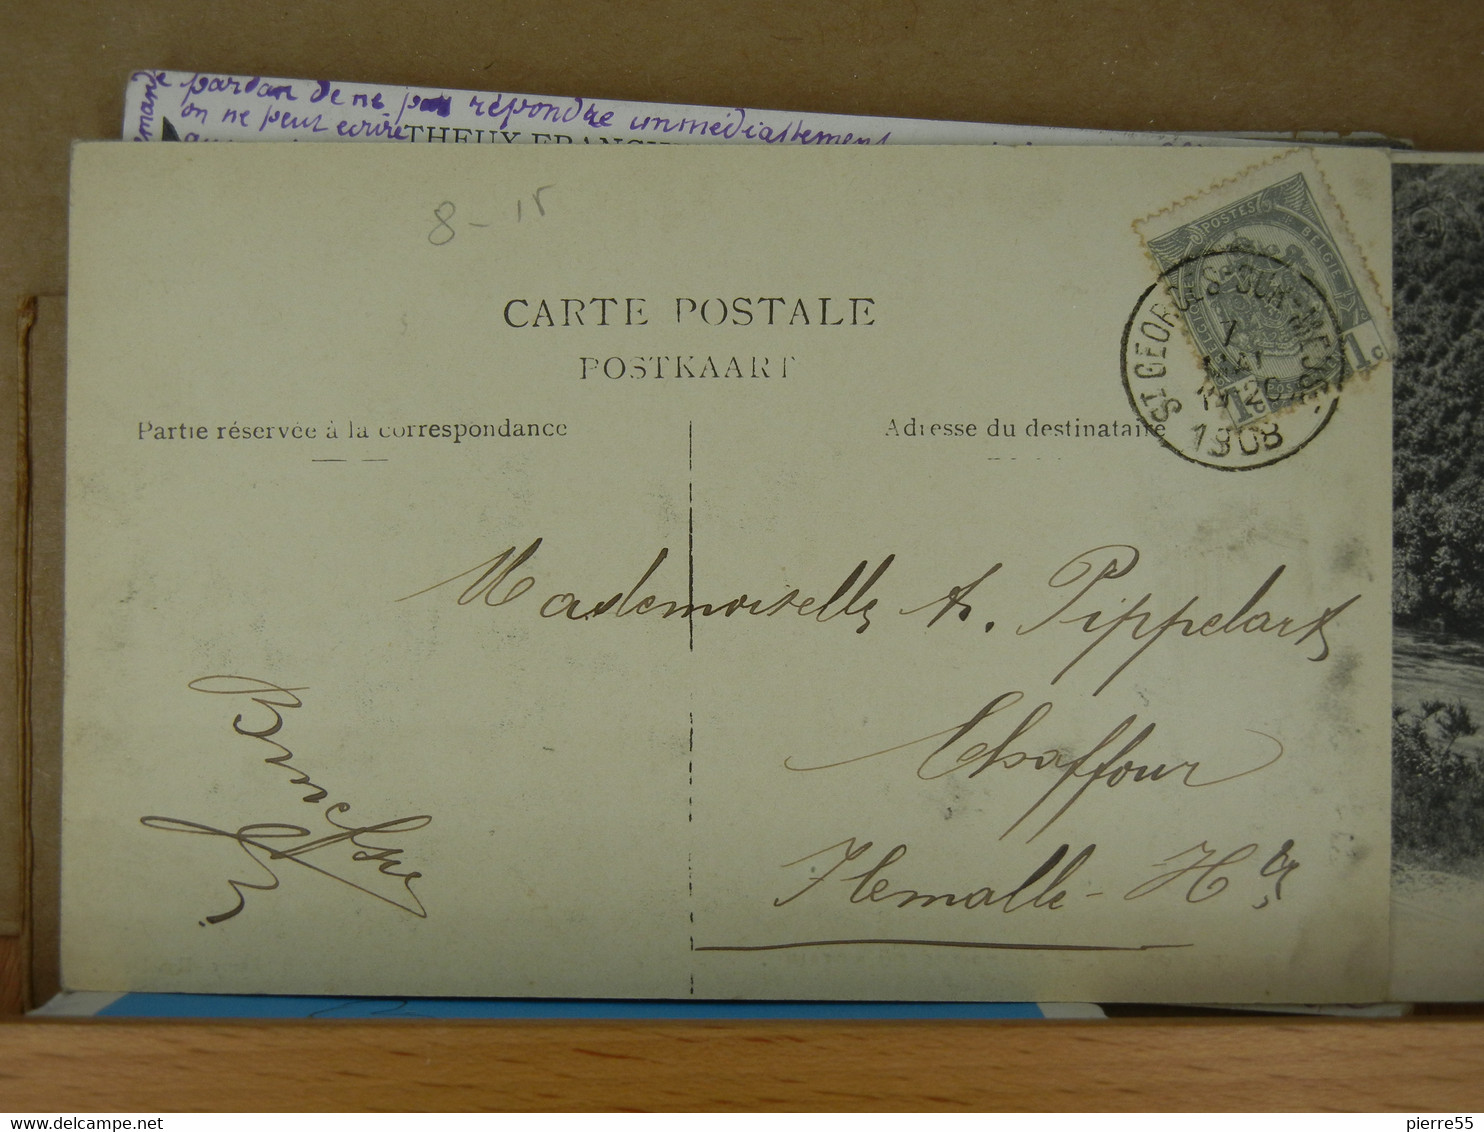 pardon de ne pas répondre immédiattement
on ne peut ecrire
THEUX FRANCH
8-15
CARTE POSTALE
POSTKAART
Partie réservée à la correspondance
Adresse du destinataire
POSTES BELGIE
1c 1c
ST GEORGES-SUR-MEUSE
7
MAI
1908
Mademoiselle A. Pippelart
Chaffour
Flemalle-Hte
delcampe.net
pierre55